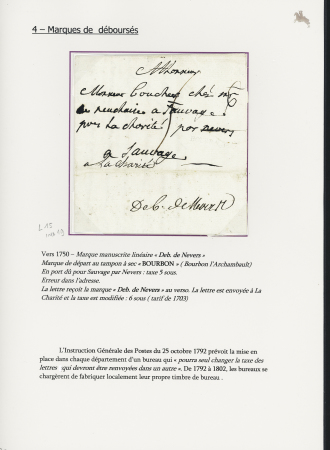 4 – Marques de déboursés
A Monsieur
Monsieur Boucher ches mr
a Sauvage
pres La charité par nevers
a Sauvage
a La Charité
Deb. de Nevers
L 15
Vers 1750 – Marque manuscrite linéaire « Deb. de Nevers »
Marque de départ au tampon à sec « BOURBON » ( Bourbon l'Archambault)
En port dû pour Sauvage par Nevers : taxe 5 sous.
Erreur dans l'adresse.
La lettre reçoit la marque « Deb. de Nevers » au verso. La lettre est envoyée à La
Charité et la taxe est modifiée : 6 sous ( tarif de 1703)
L'Instruction Générale des Postes du 25 octobre 1792 prévoit la mise en
place dans chaque département d'un bureau qui « pourra seul changer la taxe des
lettres qui devront être renvoyées dans un autre ». De 1792 à 1802, les bureaux se
chargèrent de fabriquer localement leur propre timbre de bureau .